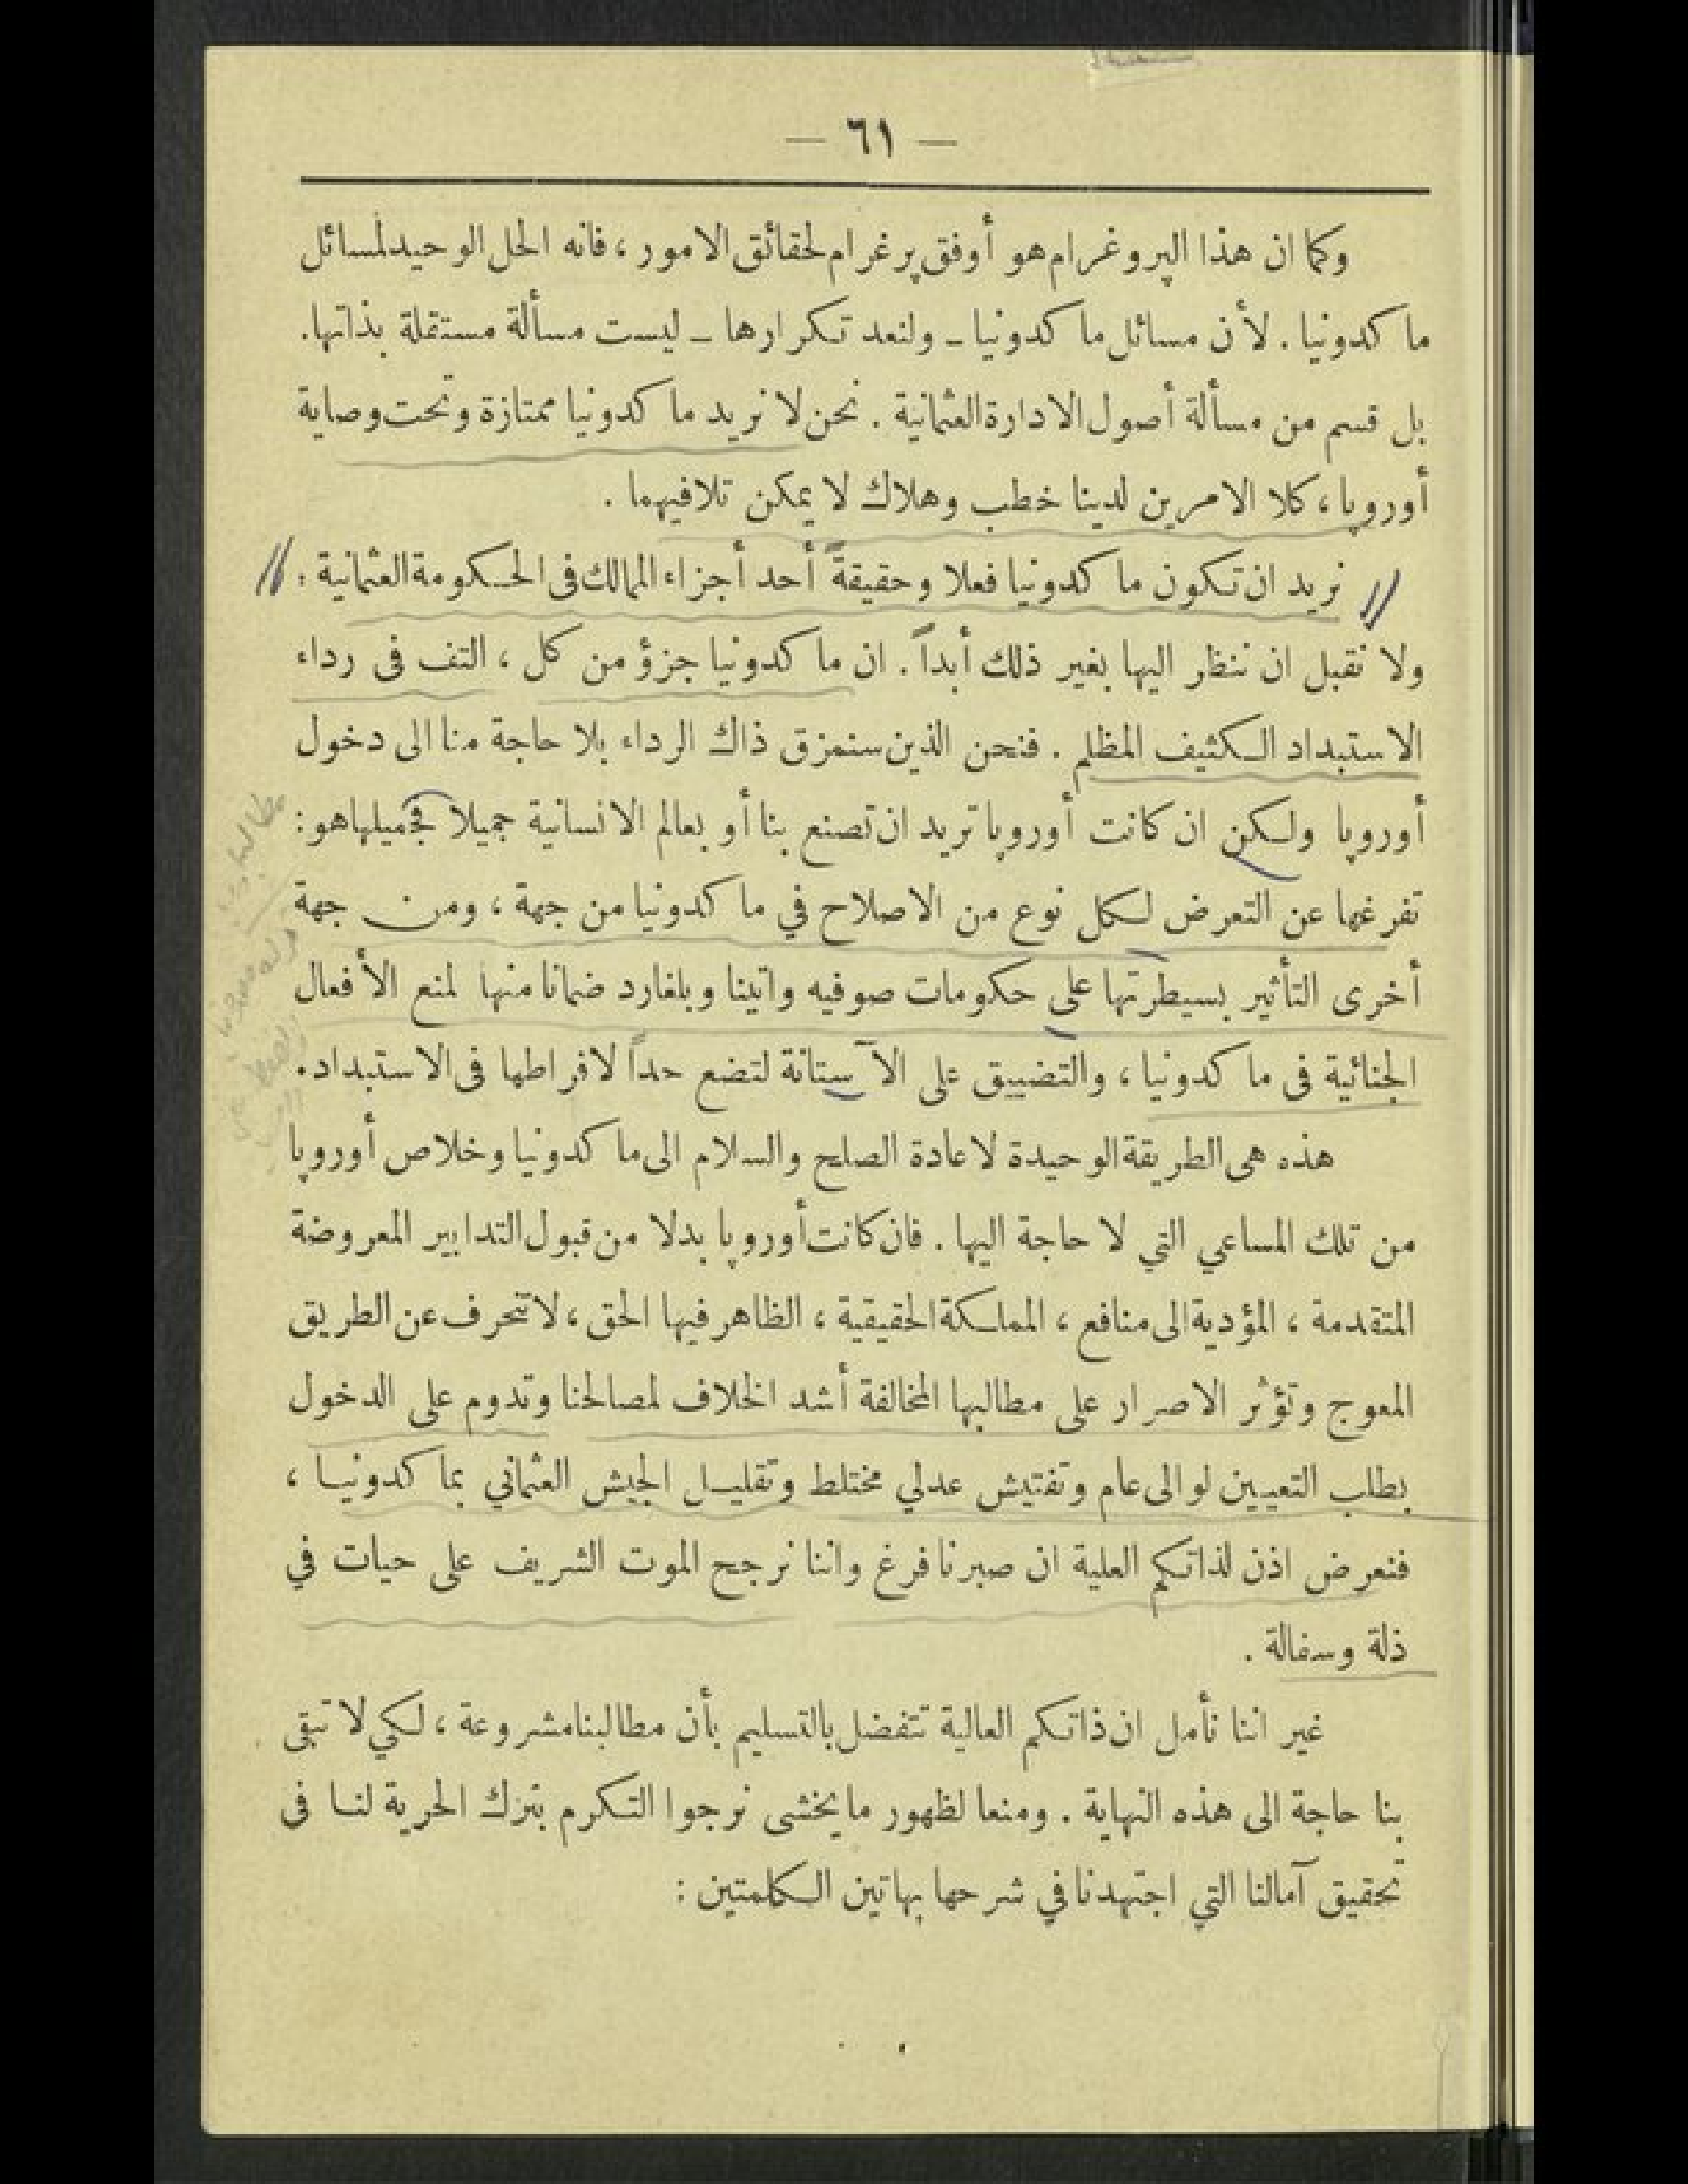 — ٦١ —
وكما ان هذا الپروغرام هو أوفق پرغرام لحقائق الامور ، فانه الحل الوحيد لمسائل
ما كدونيا . لأن مسائل ما كدونيا ـ ولنعد تكرارها ـ ليست مسألة مستقلة بذاتها.
بل قسم من مسألة أصول الادارة العثمانية . نحن لا نريد ما كدونيا ممتازة وتحت وصاية
أوروپا ، كلا الامرين لدينا خطب وهلاك لا يمكن تلافيهما .
نريد ان تكون ما كدونيا فعلا وحقيقةً أحد أجزاء الممالك فى الحكومة العثمانية :
ولا نقبل ان ننظر اليها بغير ذلك أبداً . ان ما كدونيا جزؤ من كل ، التف فى رداء
الاستبداد الكثيف المظلم . فنحن الذين سنمزق ذاك الرداء بلا حاجة منا الى دخول
أوروپا ولكن ان كانت أوروپا تريد ان تصنع بنا أو بعالم الانسانية جميلا فجميلها هو :
تفرغها عن التعرض لكل نوع من الاصلاح في ما كدونيا من جهة ، ومن جهة
أخرى التأثير بسيطرتها على حكومات صوفيه واتينا وبلغارد ضمانا منها لمنع الأفعال
الجنائية فى ما كدونيا ، والتضييق على الآستانة لتضع حداً لافراطها فى الاستبداد .
هذه هى الطريقة الوحيدة لاعادة الصلح والسلام الى ما كدونيا وخلاص أوروپا
من تلك المساعي التي لا حاجة اليها . فان كانت أوروپا بدلا من قبول التدابير المعروضة
المتقدمة ، المؤدية الى منافع ، المملكة الحقيقية ، الظاهر فيها الحق ، لا تنحرف عن الطريق
المعوج وتؤثر الاصرار على مطالبها المخالفة أشد الخلاف لمصالحنا وتدوم على الدخول
بطلب التعيين لوالى عام وتفتيش عدلي مختلط وتقليل الجيش العثماني بما كدونيا ،
فنعرض اذن لذاتكم العلية ان صبرنا فرغ واننا نرجح الموت الشريف على حيات في
ذلة وسفالة .
غير اننا نأمل ان ذاتكم العالية تتفضل بالتسليم بأن مطالبنا مشروعة ، لكي لا تبقى
بنا حاجة الى هذه النهاية . ومنعا لظهور ما يخشى نرجوا التكرم بترك الحرية لنا فى
تحقيق آمالنا التي اجتهدنا في شرحها بهاتين الكلمتين :